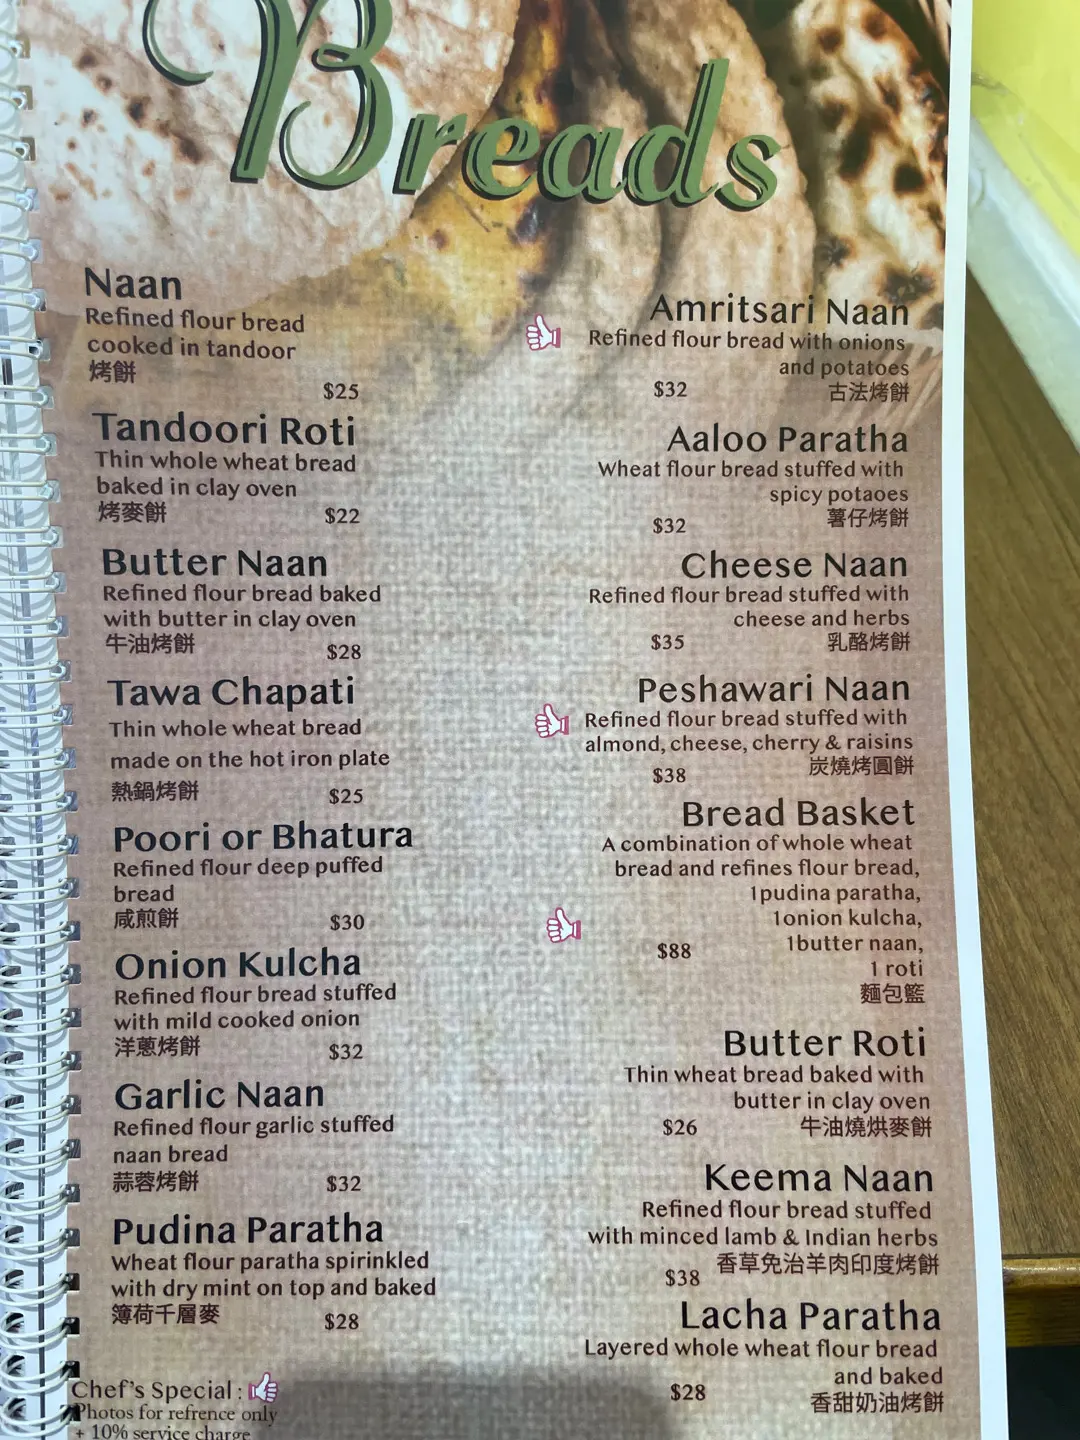 Breads
Naan
Refined flour bread
cooked in tandoor
烤餅
$25
Tandoori Roti
Thin whole wheat bread
baked in clay oven
烤麥餅
$22
Butter Naan
Refined flour bread baked
with butter in clay oven
牛油烤餅
$28
Tawa Chapati
Thin whole wheat bread
made on the hot iron plate
熱鍋烤餅
$25
Poori or Bhatura
Refined flour deep puffed
bread
咸煎餅
$30
Onion Kulcha
Refined flour bread stuffed
with mild cooked onion
洋蔥烤餅
$32
Garlic Naan
Refined flour garlic stuffed
naan bread
蒜蓉烤餅
$32
Pudina Paratha
Wheat flour paratha spirinkled
with dry mint on top and baked
簿荷千層麥
$28
Chef's Special :
Photos for refrence only
+ 10% service charge
Amritsari Naan
Refined flour bread with onions
and potatoes
$32
古法烤餅
Aaloo Paratha
Wheat flour bread stuffed with
spicy potaoes
薯仔烤餅
$32
Cheese Naan
Refined flour bread stuffed with
cheese and herbs
$35
乳酪烤餅
Peshawari Naan
Refined flour bread stuffed with
almond, cheese, cherry & raisins
炭燒烤圓餅
$38
Bread Basket
A combination of whole wheat
bread and refines flour bread,
1pudina paratha,
1onion kulcha,
1butter naan,
$88
1 roti
麵包籃
Butter Roti
Thin wheat bread baked with
butter in clay oven
$26
牛油燒烘麥餅
Keema Naan
Refined flour bread stuffed
with minced lamb & Indian herbs
香草免治羊肉印度烤餅
$38
Lacha Paratha
Layered whole wheat flour bread
and baked
$28
香甜奶油烤餅